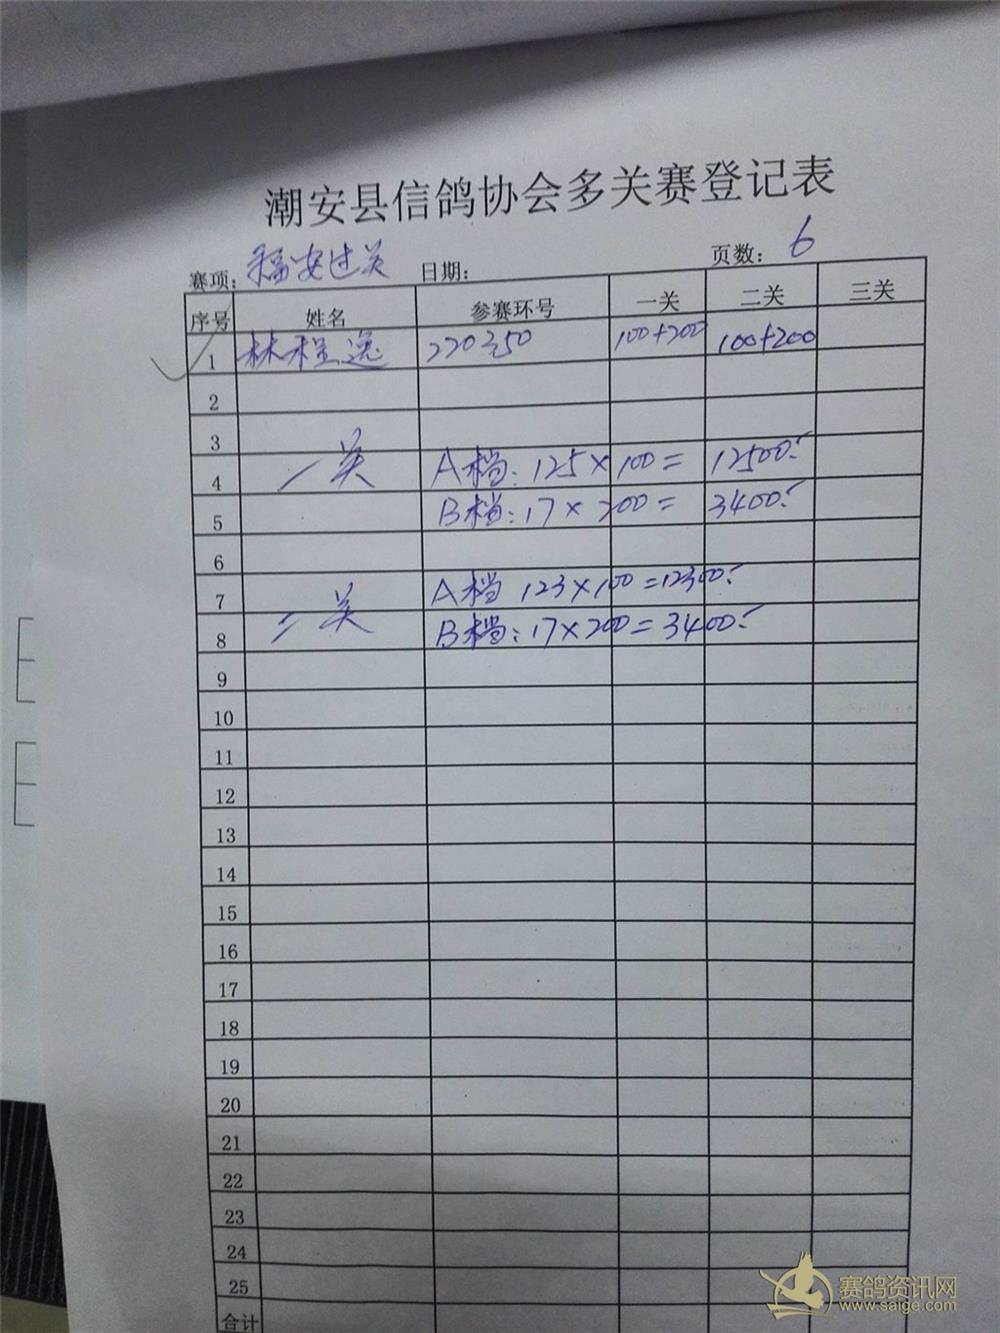 潮安县信鸽协会多关赛登记表
赛项：福安过关 日期： 页数：6
序号 姓名 参赛环号 一关 二关 三关
1 林程逸 220350 100+200 100+200
2
3
4 一关 A档：125×100= 12500.-
5 B档：17×200= 3400.-
6
7 A档 123×100=12300.-
8 二关 B档：17×200=3400.-
9
10
11
12
13
14
15
16
17
18
19
20
21
22
23
24
25
合计
赛鸽资讯网
www.saige.com